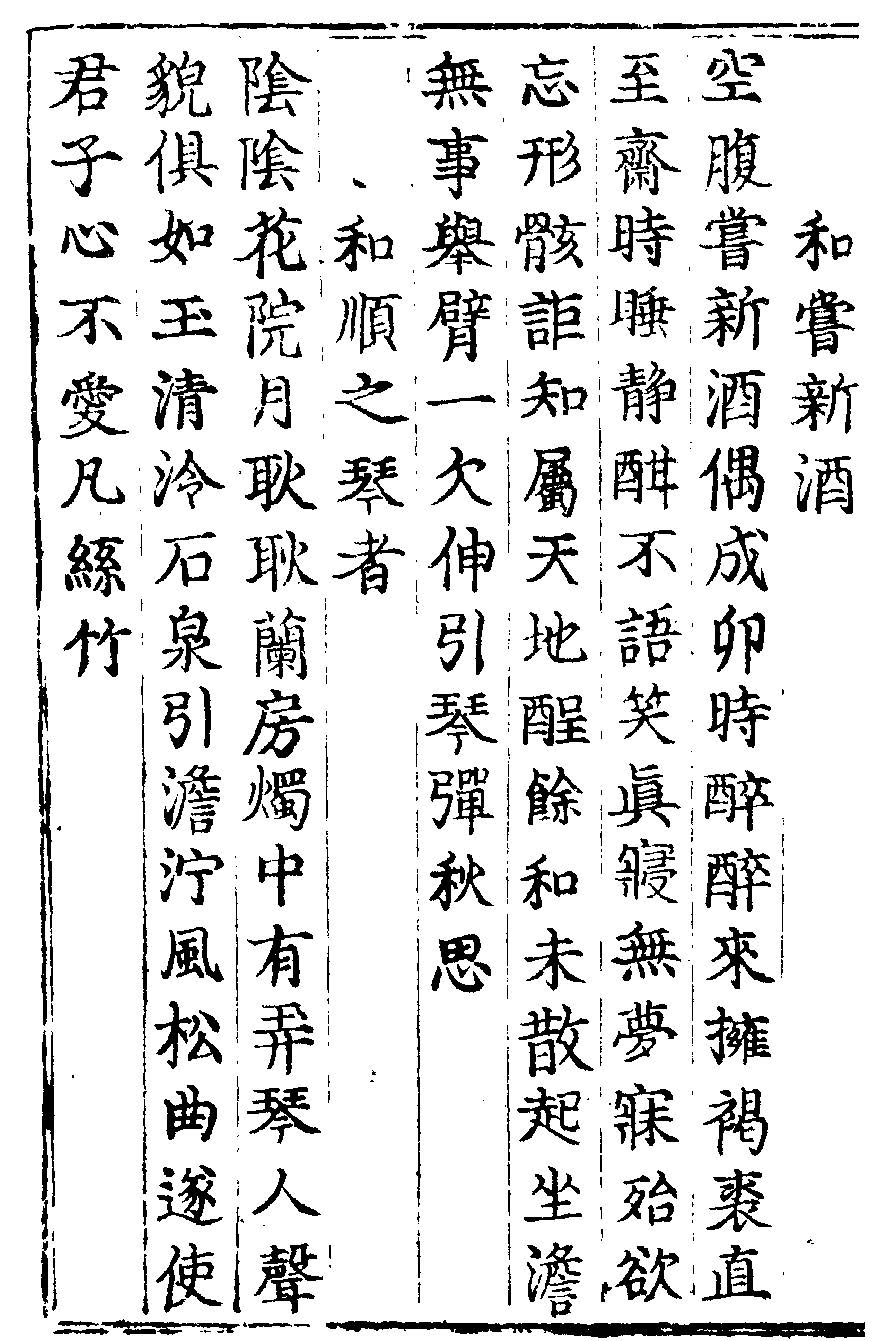 和嘗新酒
空腹嘗新酒偶成卯時醉醉來擁褐裘直
至齋時睡静酣不語笑眞寢無夢寐殆欲
忘形骸詎知屬天地酲餘和未散起坐澹
無事舉臂一欠伸引琴彈秋思
和順之琴者
陰陰花院月耿耿蘭房燭中有弄琴人聲
貌俱如玉清泠石泉引澹泞風松曲遂使
君子心不愛凡絲竹